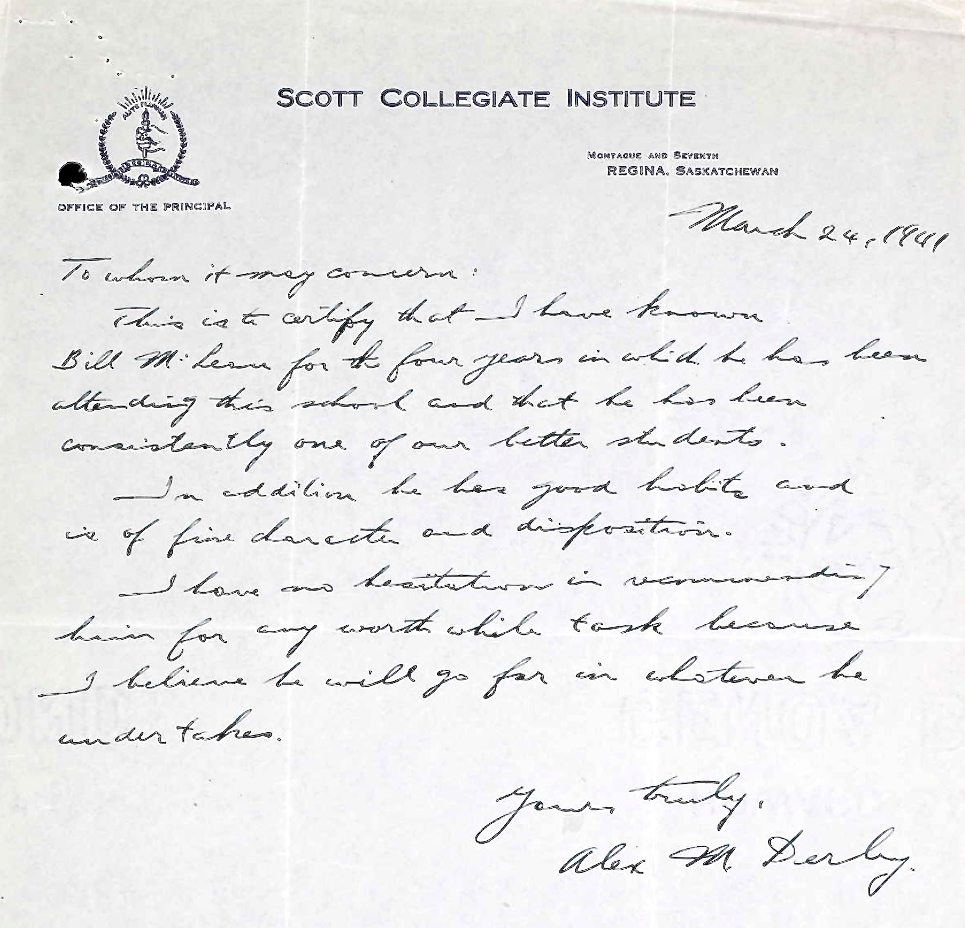 SCOTT COLLEGIATE INSTITUTE
MONTAGUE AND SEVENTH
REGINA, SASKATCHEWAN
OFFICE OF THE PRINCIPAL
March 24, 1941
To whom it may concern:
This is to certify that I have known
Bill for th four years in which he has been
attending this school and that he has been
consistently one of our better students.
In addition he has good habits and
is of fine character and disposition.
I have no hesitation in recommending
him for any worth while task because
I believe he will go far in whatever he
undertakes.
Yours truly,
Alex M. Derby.